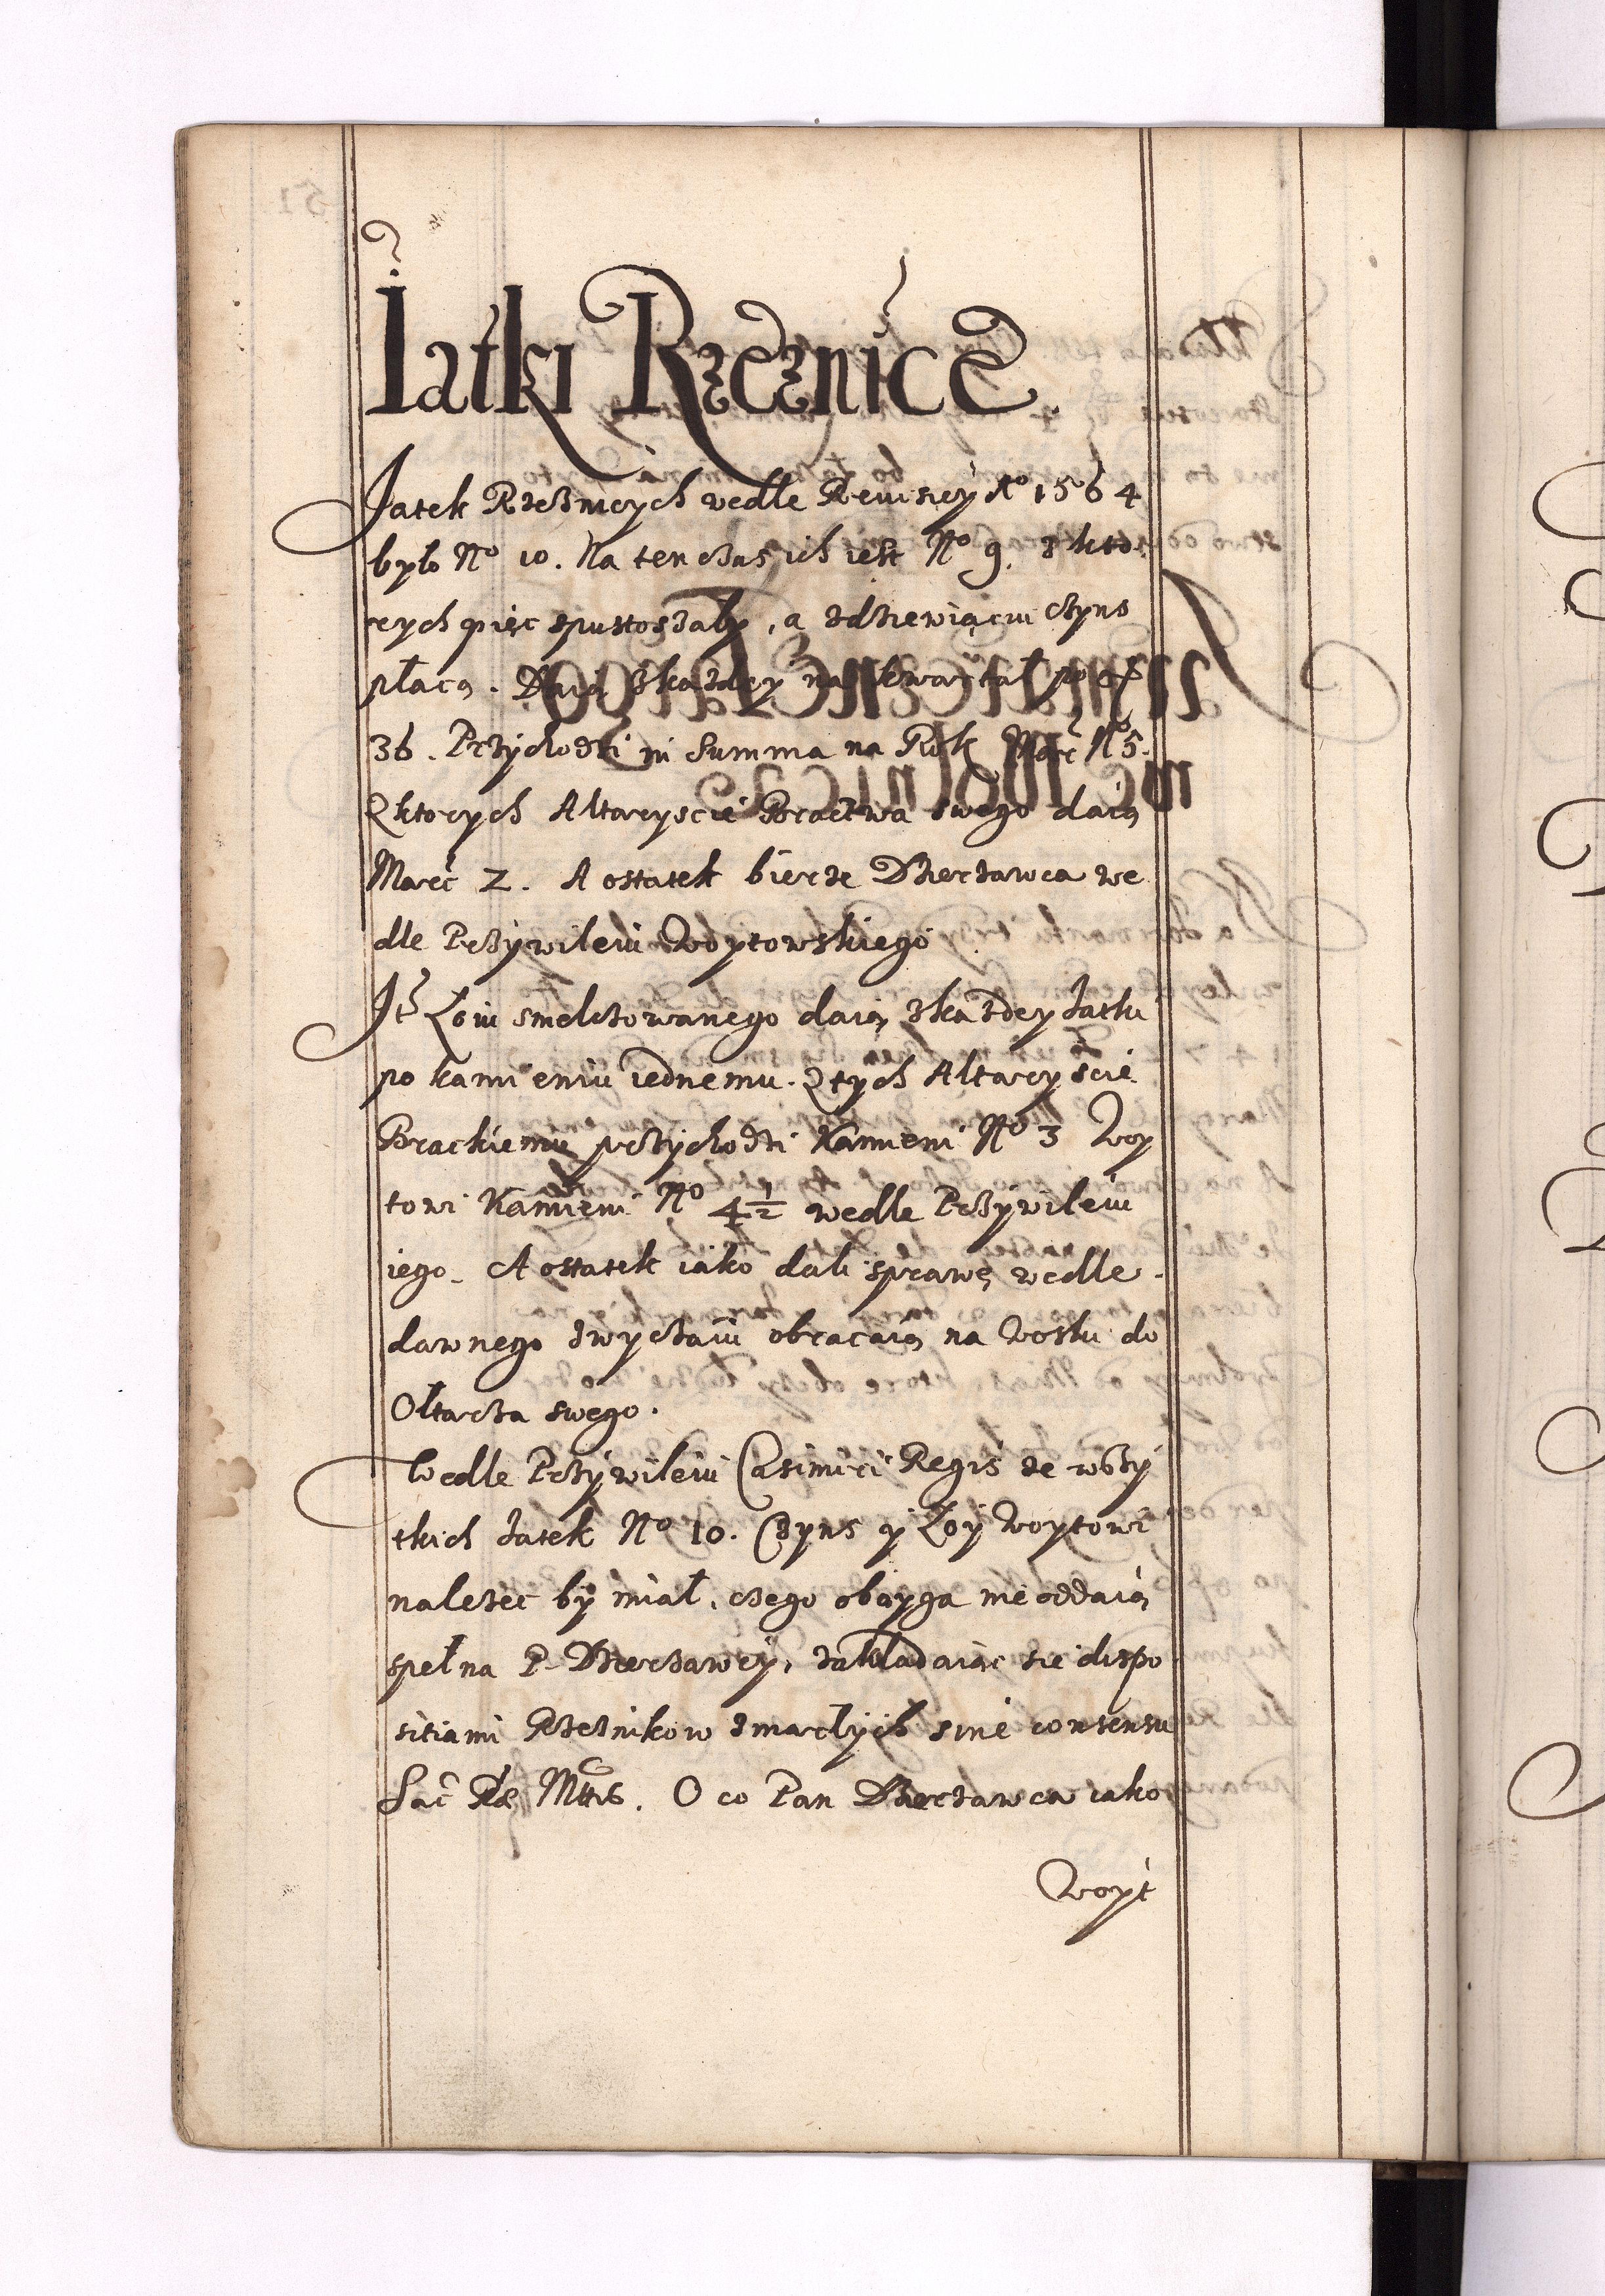 Iatki Rzeznice
Jatek Rzeźniczych wedle Rewisiey Aº 1564
było Nº 10. Na ten czas ich iest Nº 9. z kto
rych pięc spustoszały, a zdziewiąciu czyns
płacą. Daią zkażdey na kwartał po gr
36. Przychodzi in Summa na Rok Marc Nº 5.
Z ktorych Altaryscie Bractwa swego daią
Marc 2. A ostatek bierze Dzierzawca we
dle Przywileiu Woytowskiego
It Łoiu smelczowanego daią zkażdey Jatki
po kamieniu iednemu. Z tych Altaryscie
Brackiemu przychodzi Kamieni Nº 3 Woy
towi Kamieni Nº 4½ wedle Przywileiu
iego. A ostatek iako dali sprawę wedle
dawnego zwyczaiu obracaią na Wosku do
Ołtarza swego.
Wedle Przywileiu Casimiri Regis ze wszy
tkich Jatek Nº 10. Czyns y Łoy Woytowi
należec by miał, czego oboyga nie oddaią
spełna P. Dzierzawcy, zakładaiąc sie dispo
sitiami Rzeźnikow zmarłych sine consensu
Sac Rae Mttis. O co Pan Dzierzawca iako
Woyt